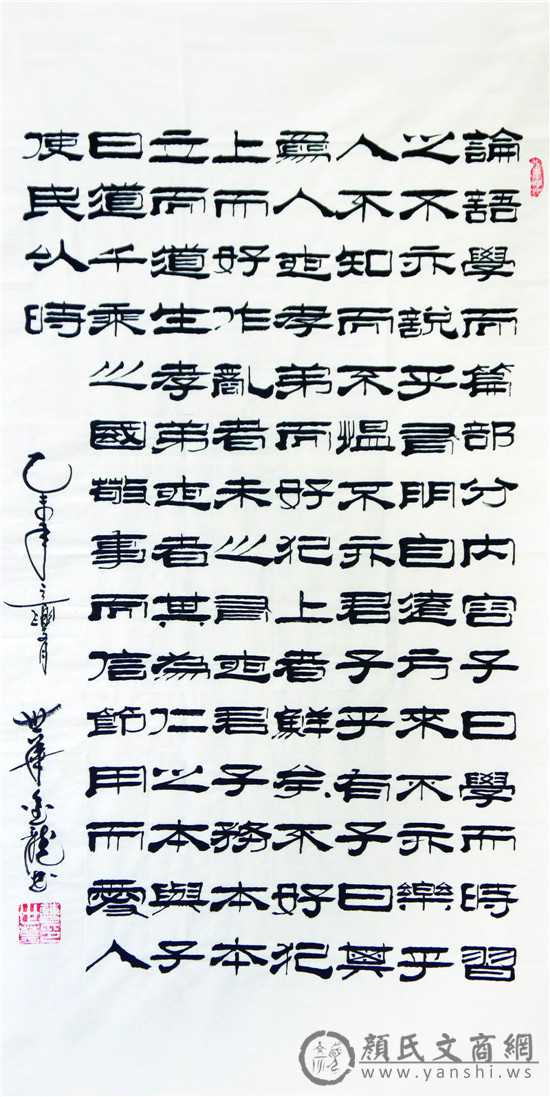 論語學而篇部分內容子曰學而時習
之不亦說乎有朋自遠方來不亦樂乎
人不知而不慍不亦君子乎有子曰其
爲人也孝弟而好犯上者鮮矣不好犯
上而好作亂者未之有也君子務本本
立而道生孝弟也者其為仁之本與子
曰道千乘之國敬事而信節用而愛人
使民以時
乙未年之月
世華金龍书
顏氏文商網
www.yanshi.ws